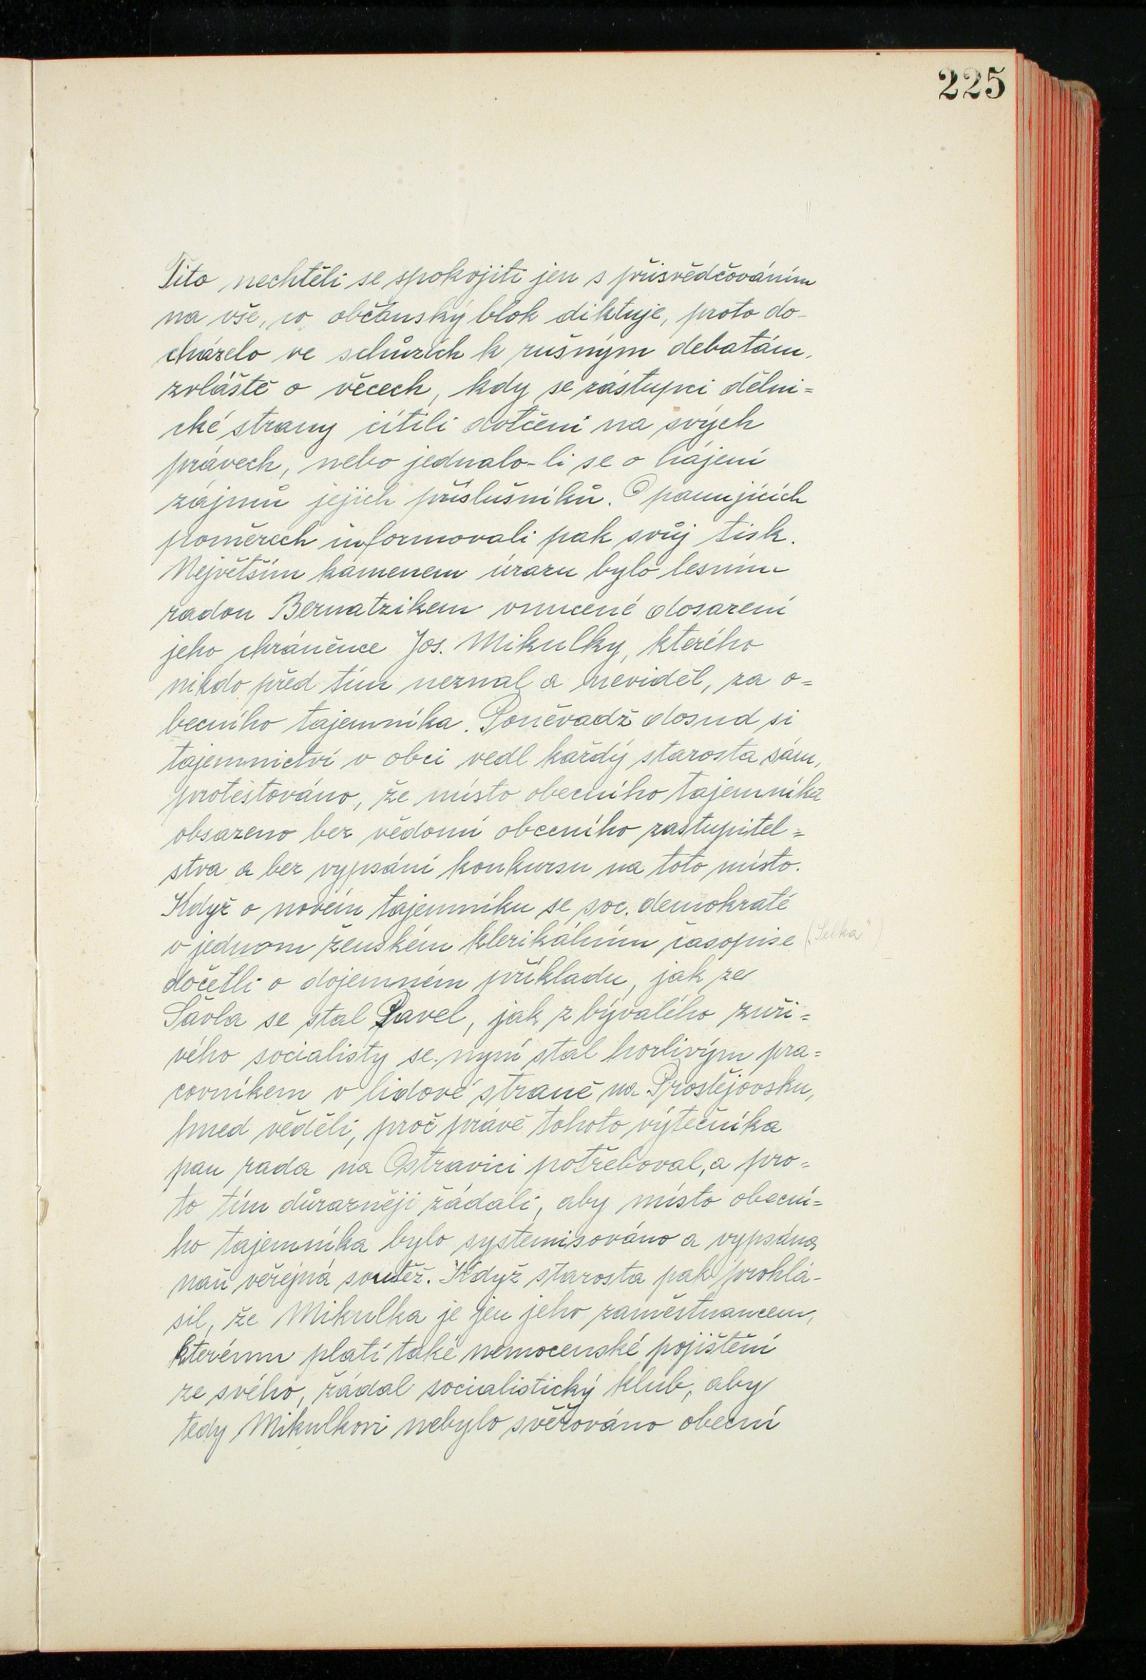 225
Tito nechtěli se spokojiti jen s přisvědčováním
na vše, co občanský blok diktuje, proto do-
cházelo ve schůzích k rušným debatám,
zvláště o věcech, kdy se zástupci dělni=
cké strany cítili dotčeni na svých
právech, nebo jednalo-li se o hájení
zájmů jejich příslušníků. O panujících
poměrech informovali pak svůj tisk.
Největším kamenem úrazu bylo lesním
radou Bernatzikem vnucené dosazení
jeho chráněnce Jos. Mikulky, kterého
nikdo před tím neznal a neviděl, za o=
becního tajemníka. Poněvadž dosud si
tajemnictví v obci vedl každý starosta sám,
protestováno, že místo obecního tajemníka
obsazeno bez vědomí obecního zastupitel=
stva a bez vypsání konkursu na toto místo.
Když o novém tajemníku se soc. demokraté
v jednom ženském klerikálním časopise
dočetli o dojemném příkladu, jak ze
Šavla se stal Pavel, jak z bývalého zuři=
vého socialisty se nyní stal horlivým pra=
covníkem v lidové straně na Prostějovsku,
hned věděli, proč právě tohoto výtečníka
pan rada na Ostravici potřeboval, a pro=
to tím důrazněji žádali, aby místo obecní=
ho tajemníka bylo systemisováno a vypsána
naň veřejná soutěž. Když starosta pak prohlá-
sil, že Mikulka je jen jeho zaměstnancem,
kterému platí také nemocenské pojištění
ze svého, žádal socialistický klub, aby
tedy Mikulkovi nebylo svěřováno obecní